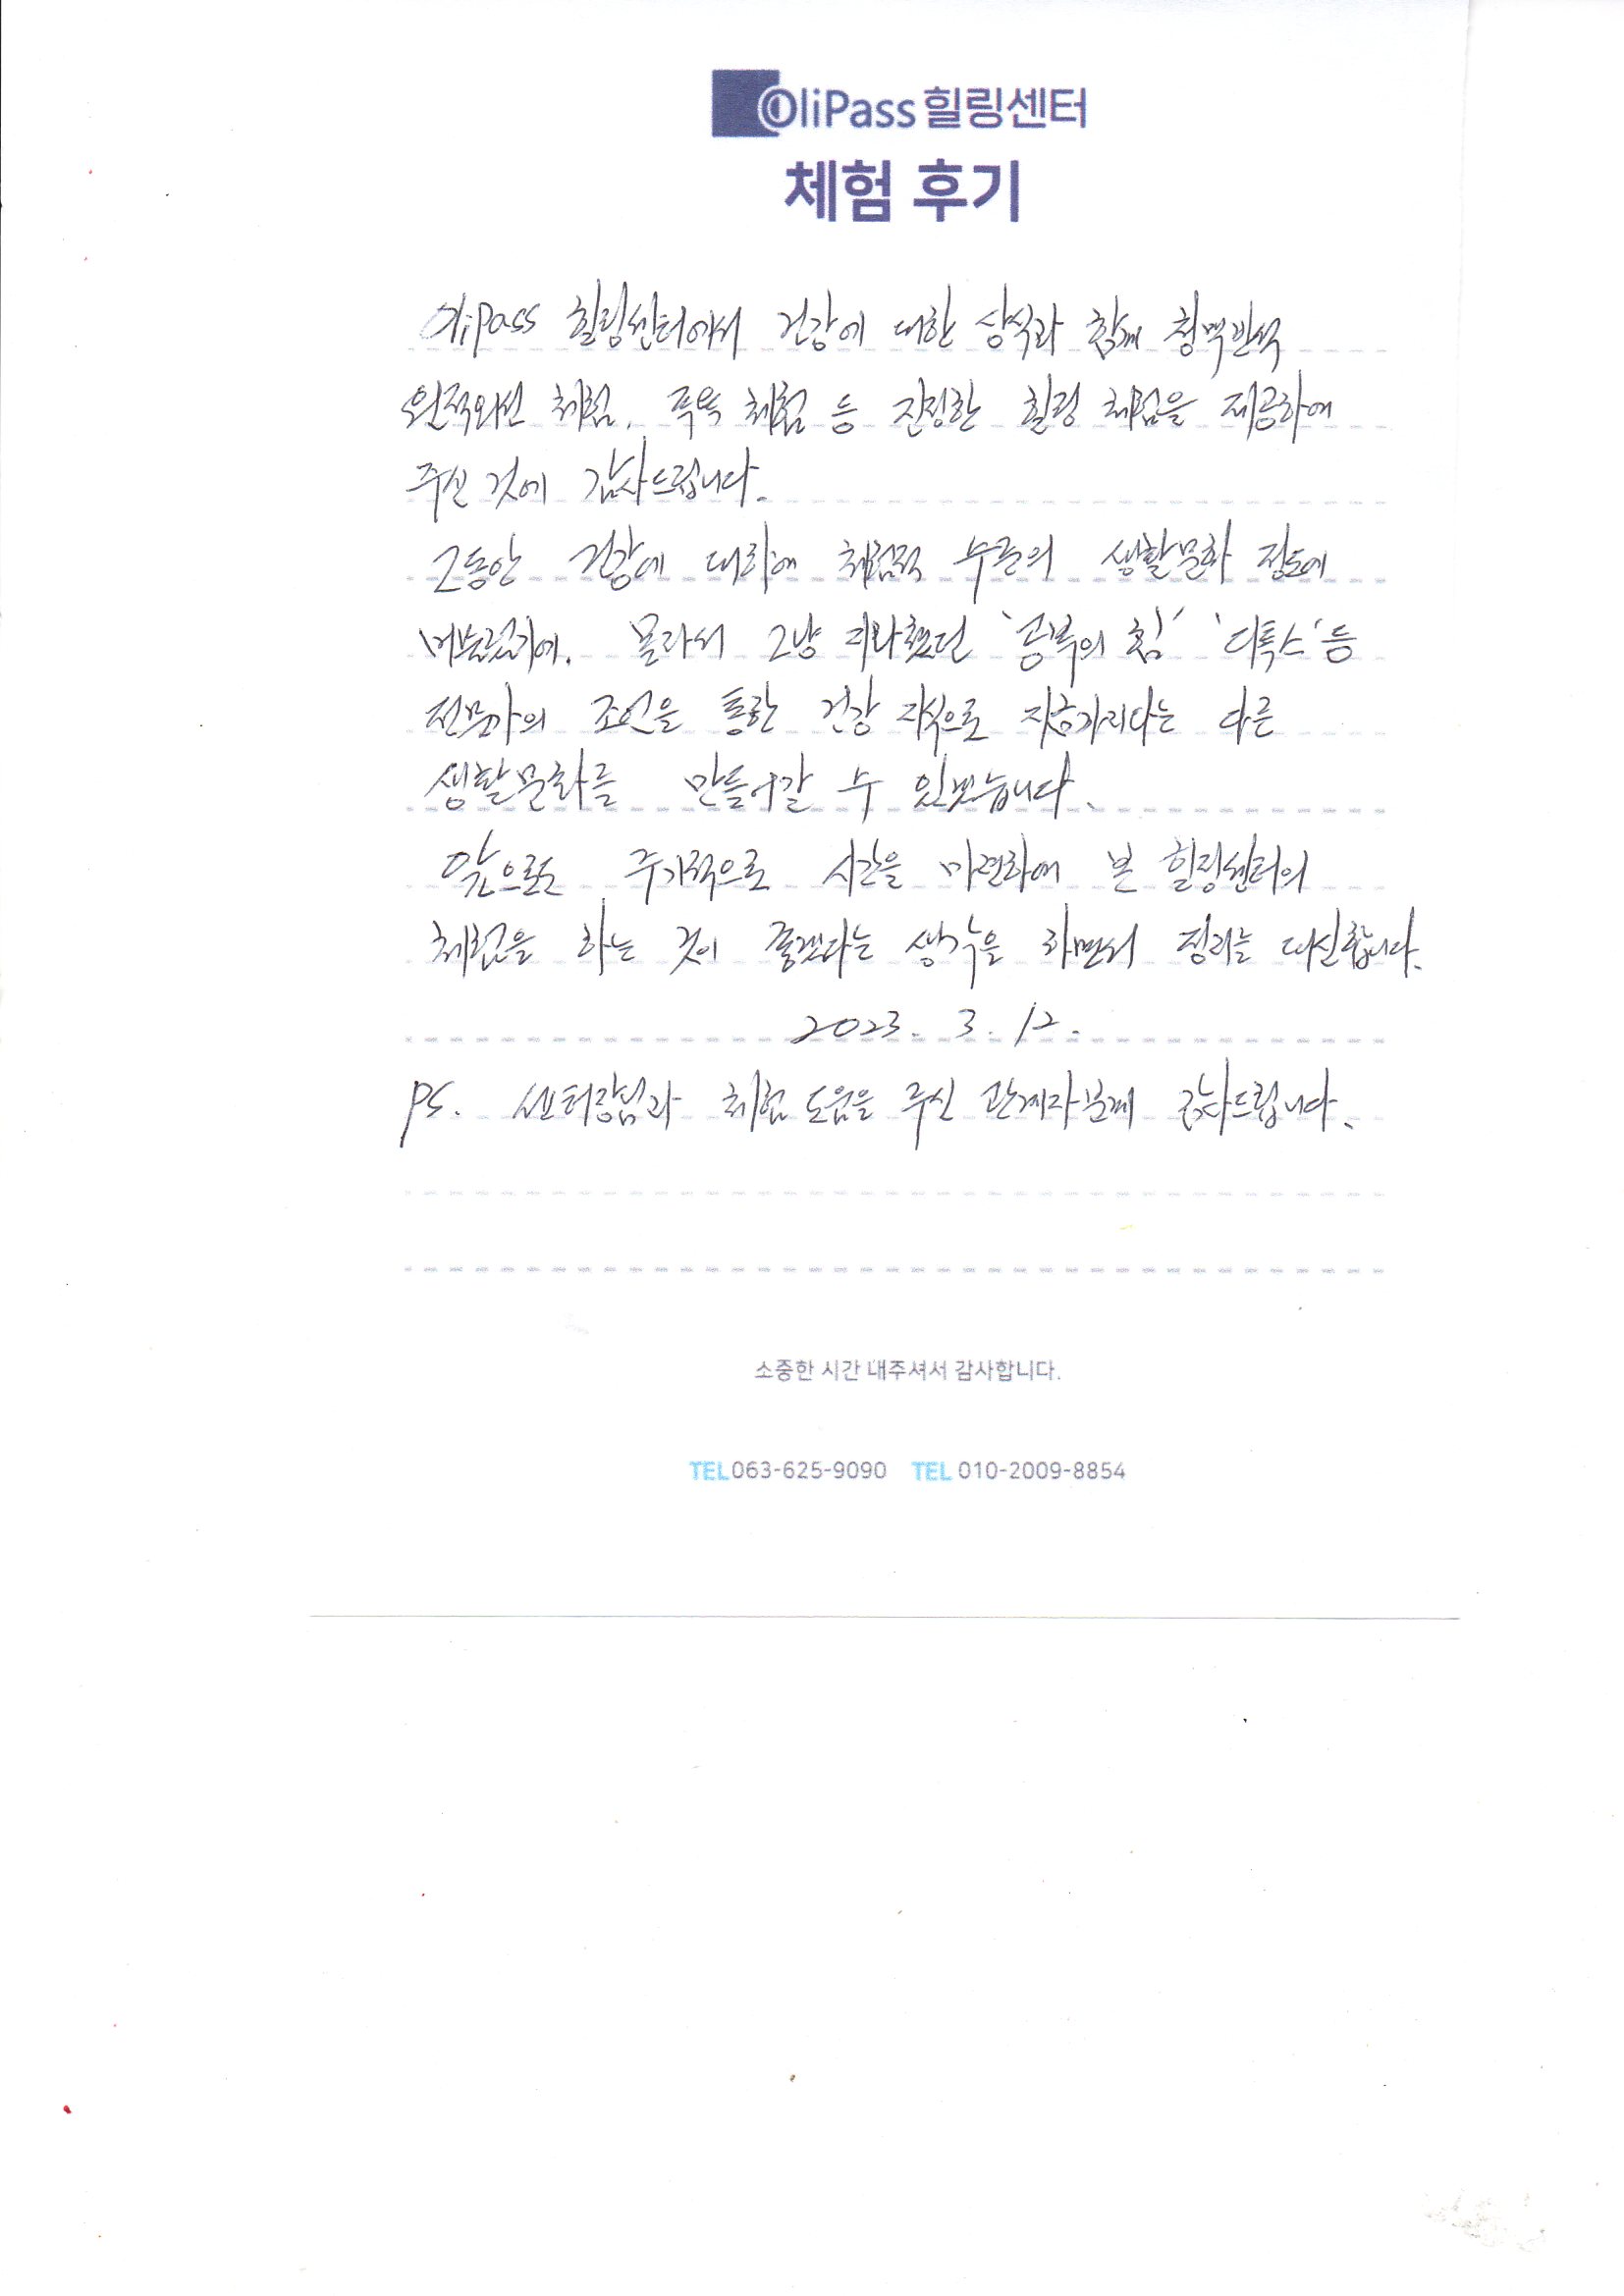 OliPass 힐링센터
체험 후기
Olipass 힐링센터에서 건강에 대한 상식과 함께 청맥반석
원적외선 체험, 족욕 체험 등 진정한 힐링 체험을 제공하여
주신 것에 감사드립니다.
그동안 건강에 대하여 체험적 수준의 생활문화 정도에
머물렀기에, 몰라서 그냥 지나쳤던 '공복의 힘' '디톡스' 등
전문가의 조언을 통한 건강 지식으로 지금까지다는 다른
생활문화를 만들어갈 수 있겠습니다.
앞으로도 주기적으로 시간을 마련하여 본 힐링센터의
체험을 하는 것이 좋겠다는 생각을 하면서 정리를 대신합니다.
2023. 3. 12.
PS. 센터장님과 체험 도움을 주신 관계자분께 감사드립니다.
소중한 시간 내주셔서 감사합니다.
TEL 063-625-9090 TEL 010-2009-8854